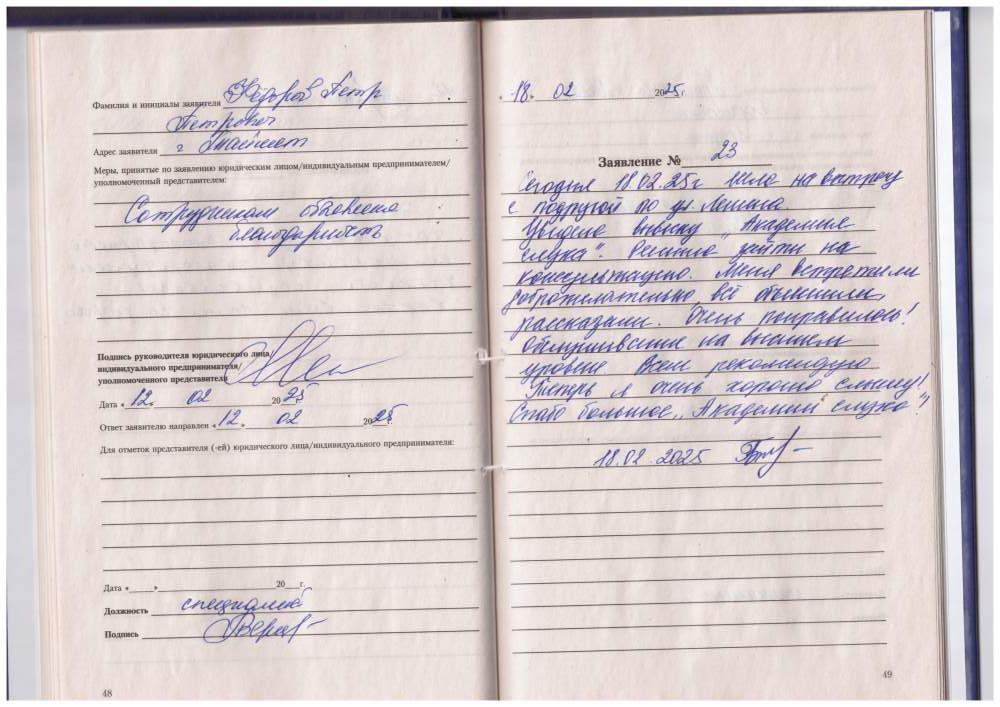 Фамилия и инициалы заявителя Фёдоров Петр
Петрович
Адрес заявителя г Тайшет
Меры, принятые по заявлению юридическим лицом/индивидуальным предпринимателем/
уполномоченный представителем:
Сотрудникам объявлена
благодарность
Подпись руководителя юридического лица/
индивидуального предпринимателя/
уполномоченного представителя
Дата «12» 02 2025
Ответ заявителю направлен «12» 02 2025г.
Для отметок представителя (-ей) юридического лица/индивидуального предпринимателя:
Дата «___» 20__г.
Должность специалист
Подпись
48
«18» 02 2025г.
Заявление № 23
Сегодня 18.02.25г шла на встречу
с подругой по ул Ленина.
Увидела вывеску „Академия
слуха". Решила зайти на
консультацию. Меня встретили
доброжелательно всё объяснили,
рассказали. Очень понравилось!
Обслуживание на высшем
уровне Всем рекомендую
Теперь я очень хорошо слышу!
Спасибо большое „Академии слуха"!
18.02.2025
49